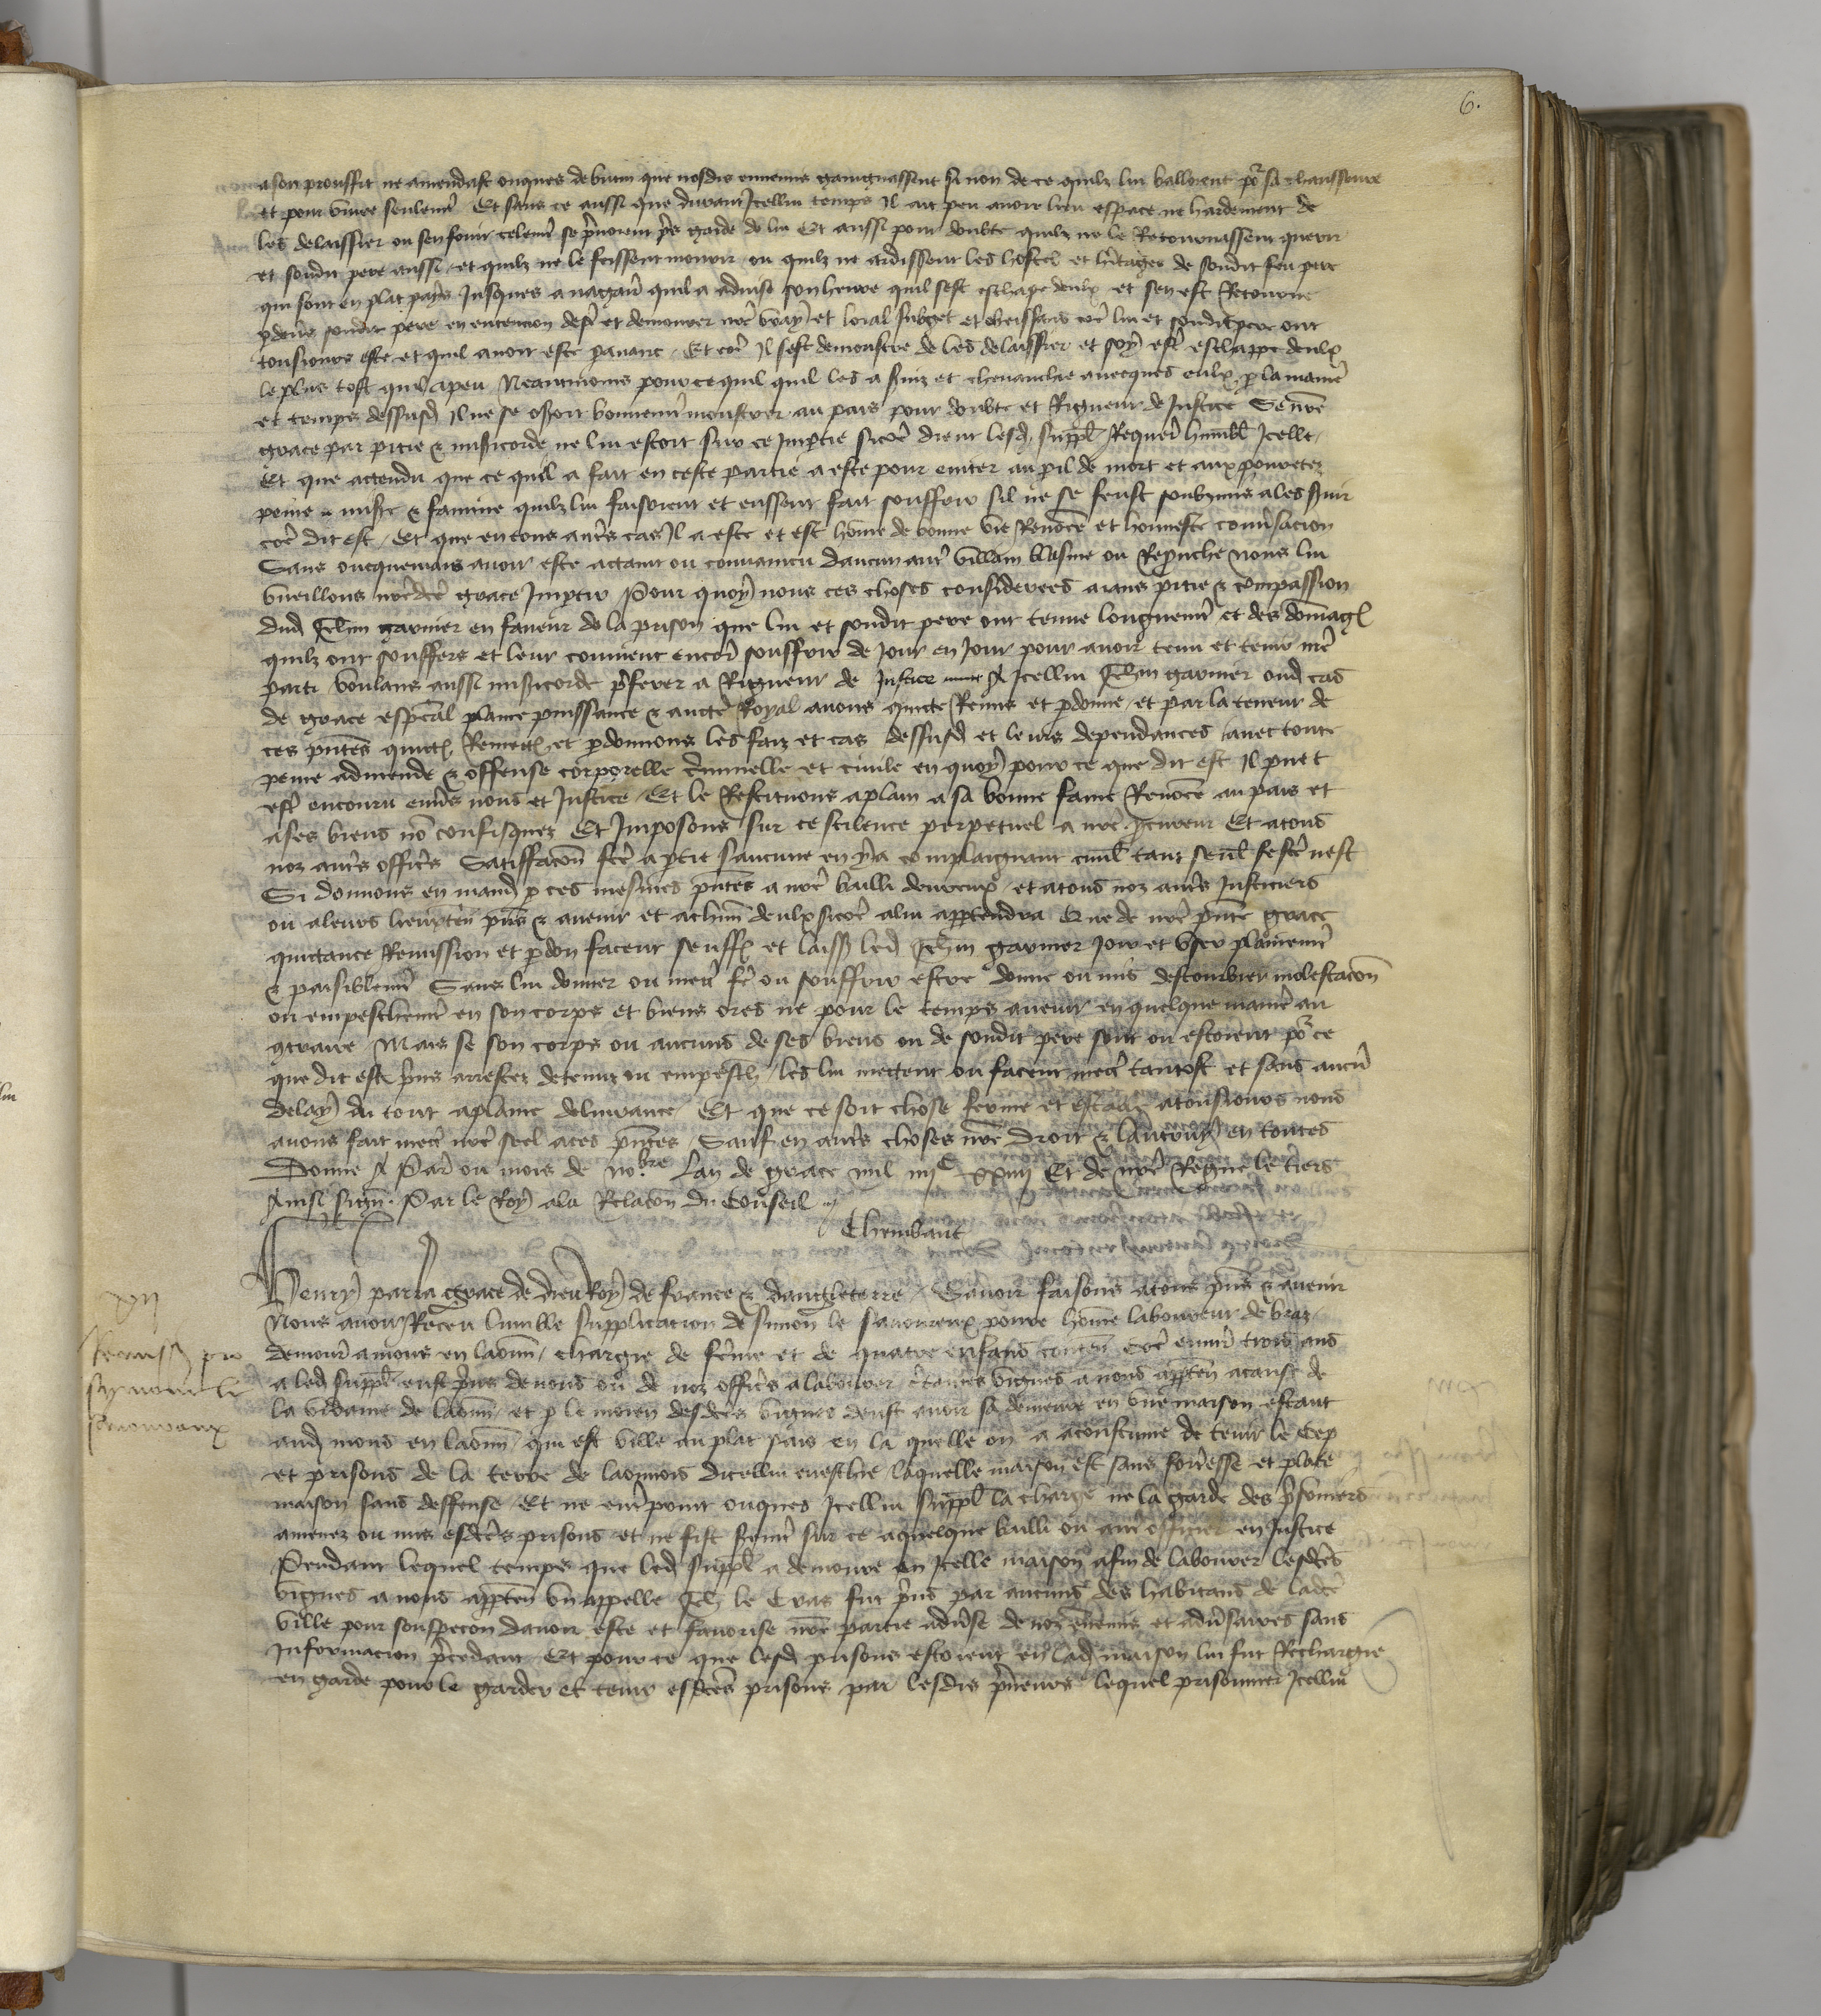 6.
a son prouffit ne amendast onques de butin que nosdis ennemis gaingnassent si non de ce quilz lui balloient por sa chaussure
et pour vivre seulemt Et sans ce aussi que durant Icellui temps Il ait peu avoir lieu espace ne hardement de
les delaissier ou sen fouir telemt se prnoient prs garde de lui Et aussi pour doubte quilz ne le Retournassent querir
et sondit pere aussi et quilz ne le feissent mourir ou quilz ne ardissent les hostelz et hritages de sondit feu pere
qui sont en plat pays Jusques a nagairs quil a advisé son heure quil sest eschapé deulx et sen est Retourné
sondit pere en entencion destr et demourer nre vray et loial subget et obeissant coe lui et sondit pere ont
tousiours esté et quil avoit esté paravant Et coe Il sest demonstré de les delaissier et soy estr eschappé deulx
le plus tost quil a peu Neantmoins pour ce quil quil les a suiz et chevauchié avecques eulx p la manie
et temps dessusd Il ne se oseroit bonnemt monstrer au pais pour doubte et Rigueur de Justice Se nre
grace par pitié & misicorde ne lui estoit sur ce Impartie sicoe dient lesd suppl Requerr humbl Icelle
Et que attendu que ce quil a fait en ceste partie a esté pour eviter au pil de mort et aux povretez
peine misere & famine quilz lui faisoient et eussent fait souffrir sil ne se feust soubzmis a les suir
coe dit est Et que en tous autrs cas Il a esté et est hoe de bonne vie Renoee et honneste convsacion
Sans oncquemais avoir esté actaint ou convaincu daucun autr villain blasme ou Reprouche nous lui
vueillons nredce grace Impartir Pour quoy nous ces choses considerees aians pitié & compassion
dud Jehan garnier en faveur de la prison que lui et sondit pere ont tenue longuemt et des dommag
quilz ont souffers et leur convient encor souffrir de Jour en Jour pour avoir tenu et tenir nre
parti voulans aussi misericorde prferer a Rigueur de Justice A Icellui Jehan garnier oud cas
de grace especial plaine puissance & aucte Royal avons quicté Remis et pdonné et par la teneur de
ces pntes quictons Remectons et pdonnons les faiz et cas dessusd et leurs dependances avec toute
peine admende & offense corporelle criminelle et civile en quoy pour ce que dit est Il puet
estr encouru envrs nous et Justice Et le Restituons a plain a sa bonne fame Renoee au pais et
a ses biens no confisquez Et Imposons sur ce scilence perpetuel a nre procureur Et a tous
noz autrs officrs Satiffacon fce a ptie saucune en y a complaignant civilt tant seult se fce nest
Si donnons en mand p ces mesmes pntes a nre bailli devreux et a tous noz autrs Justiciers
ou a leurs lieuxten pns & avenir et a chun deulx sicoe a lui appartendra Que de nre pnte grace
quictance Remission et pdon facent seuffr et laiss led Jehan garnier Joir et user plainemt
& paisiblemt Sans lui donner ou mectr fe ou souffrir estre donné ou mis destourbier molestacon
ou empeschemt en son corps et biens ores ne pour le temps avenir en quelque manie au
contraire Mais se son corps ou aucuns de ses biens ou de sondit pere sont ou estoient por ce
que dit est prins arrestez detenuz ou empesch les lui mettent ou facent mectr tantost et sans aucun
delay du tout a plaine delivrance Et que ce soit chose ferme et estable a tousiours nous
avons fait mectr nre seel a ces pntes Sauf en autrs choses nre droit & lautruy en toutes
Donné A Paris ou mois de novbre Lan de grace mil iiiic xxiiii Et de nre Regne le tiers
Ainsi signe Par le Roy a la Relacon du Conseil
Thiembaut
Henry par la grace de dieu Roy de france & dangleterre Savoir faisons a tous pns & avenir
Nous avoir Receu lumble supplication de simon le savoureux povre hoe laboureur de braz
demour a mons en laonn chargié de feme et de quatre enfans conten coe environ trois ans
a led suppl eust prins de nous ou de noz officrs a labourer certaines vignes a nous apparten a cause de
la vidamé de laonn et p le moien desdces vignes deust avoir sa demeure en une maison estant
aud mons en laonn qui est ville au plat pais en la quelle on a acoustumé de tenir le Cep
et prisons de la terre de laonnois dicellui eveschié laquelle maison est sans forresse et plate
maison sans deffense Et ne emprint onques Icellui suppl la charge ne la garde des prisonniers
amenez ou mis esdces prisons et ne fist sermt sur ce a quelque bailli ou autr officier en Justice
Pendant lequel temps que led suppl a demouré en Icelle maison afin de labourer lesdces
vignes a nous apparten un appellé Jeh le Cras fut prins par aucuns des habitans de ladce
ville pour souspecon davoir esté et favorisé nre partie advrse de noz ennemis et adversaires sans
Informacion precedant Et pour ce que lesd prisons estoient en lad maison lui fut Rechargié
en garde pour le garder et tenir esdces prisons par lesdis preneurs lequel prisonnier Icellui
xii
Remiss pro
symone le
savoureux